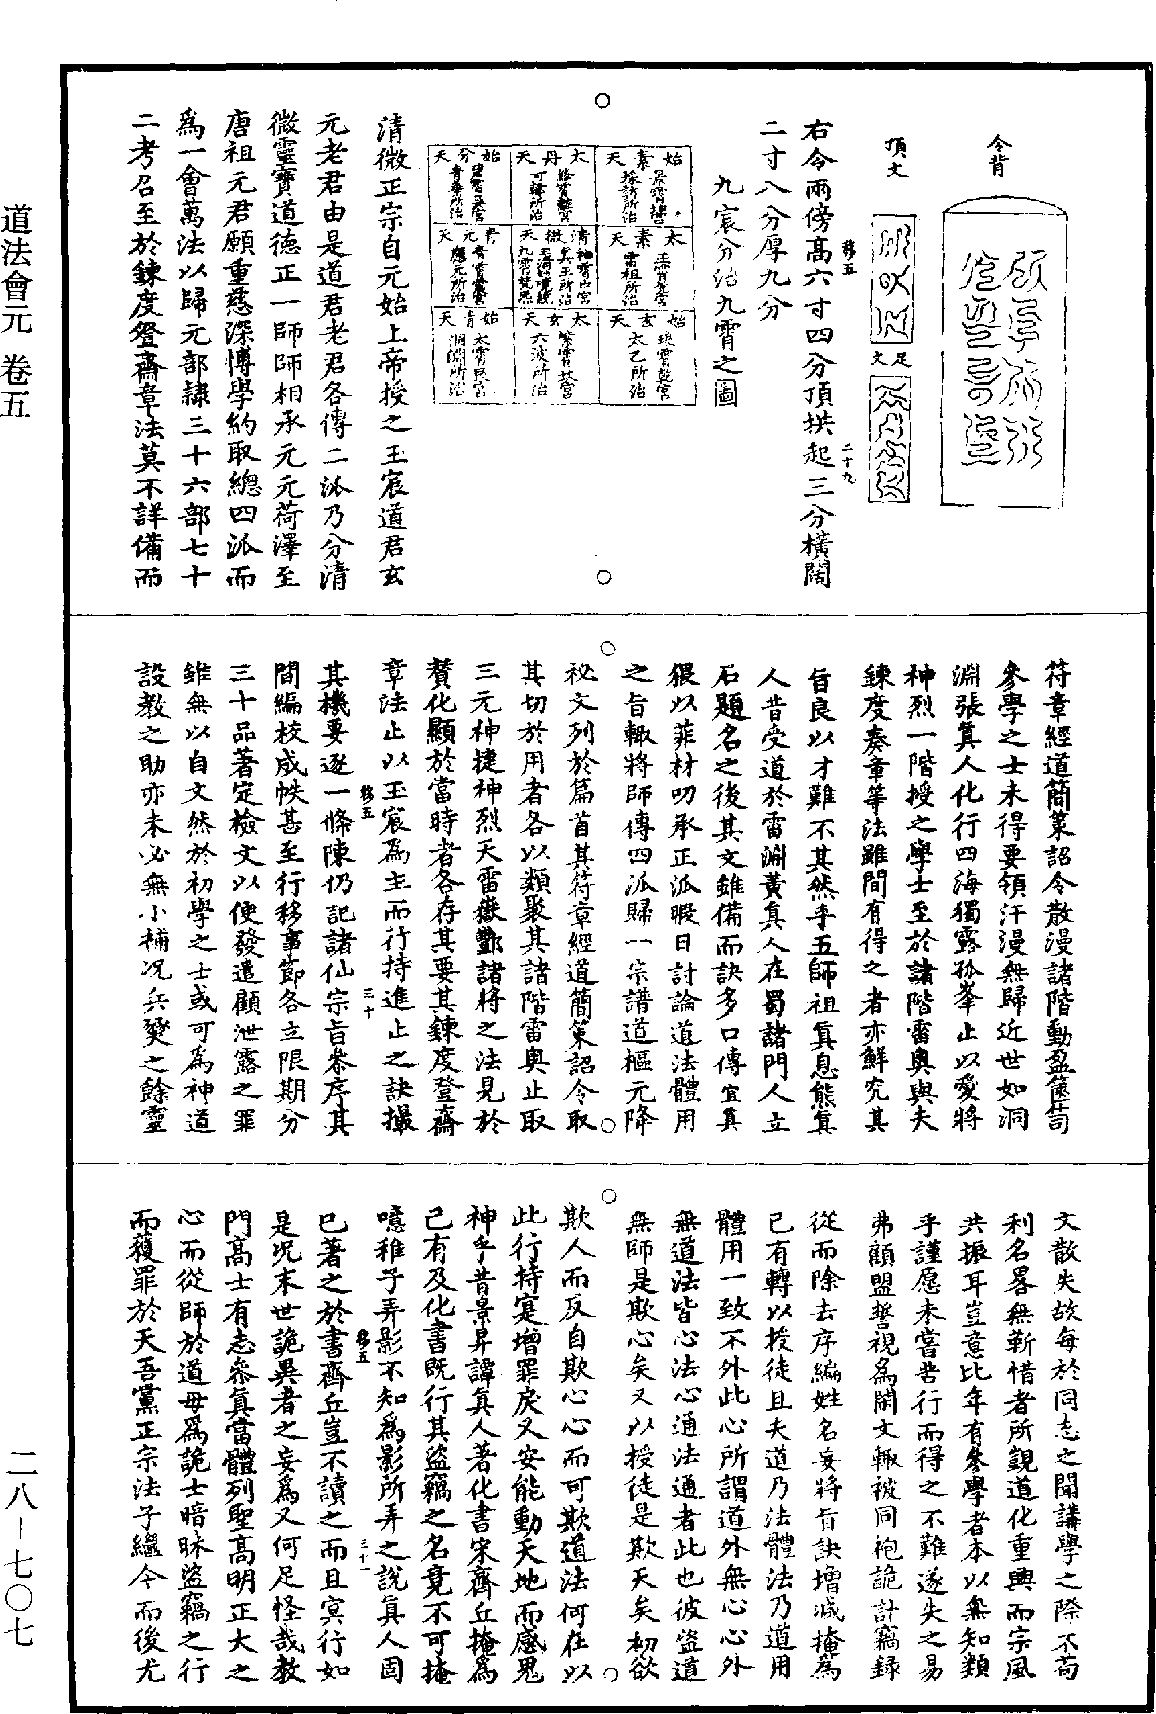 道法會元 卷五
二八-七〇七
令背
頂文
足文
右令兩傍高六寸四分頂拱起三分橫闊
二寸八分厚九分
九宸分治九霄之圖
移五
二十九
始素天
採訪所治
太丹天
可韓所治
始分天
青華所治
太素天
雷祖所治
清微天
玉所治
青元天
應元所治
始玄天
太乙所治
太玄天
六波所治
始青天
洞淵所治
清微正宗自元始上帝授之玉宸道君玄
元老君由是道君老君各傳二派乃分清
微靈寶道德正一師師相承元元荷澤至
唐祖元君願重慈深博學約取總四派而
爲一會萬法以歸元部隸三十六部七十
二考召至於鍊度登齋章法莫不詳備而
符章經道簡策詔令散漫諸階動盈篋笥
參學之士未得要領汗漫無歸近世如洞
淵張真人化行四海獨露孤峯止以愛將
神烈一階授之學士至於諸階雷奧與夫
鍊度奏章等法雖間有得之者亦鮮究其
旨良以才難不其然乎五師祖真息熊真
人昔受道於雷淵黃真人在蜀諸門人立
石題名之後其文雖備而訣多口傳宜真
猥以菲材叨承正派暇日討論道法體用
之旨輒將師傳四派歸一宗譜道樞元降
祕文列於篇首其符章經道簡策詔令取
其切於用者各以類聚其諸階雷奧止取
三元神捷神烈天雷嶽酆諸將之法見於
贊化顯於當時者各存其要其鍊度登齋
章法止以玉宸爲主而行持進止之訣撮
移五
三十
其機要逐一條陳仍記諸仙宗旨叅序其
間編校成帙甚至行移事節各立限期分
三十品著定檢文以便發遣顧泄露之罪
雖無以自文然於初學之士或可爲神道
設教之助亦未必無小補况兵燹之餘靈
文散失故每於同志之開講學之際不苟
利名畧無靳惜者所覬道化重興而宗風
共振耳豈意比年有參學者本以無知類
乎謹愿未嘗苦行而得之不難遂失之易
弗顧盟誓視爲閑文輒被同袍詭計竊録
從而除去序編姓名妄將旨訣增減掩爲
己有轉以授徒且夫道乃法體法乃道用
體用一致不外此心所謂道外無心心外
無道法皆心法心通法通者此也彼盜道
無師是欺心矣又以授徒是欺天矣初欲
欺人而反自欺心心而可欺道法何在以
此行持寔增罪戾又安能動天地而感鬼
神乎昔景昇譚真人著化書宋齊丘掩爲
己有及化書既行其盜竊之名竟不可掩
噫稚子弄影不知爲影所弄之說真人固
移五
三十一
已著之於書齊丘豈不讀之而且冥行如
是况末世詭異者之妄爲又何足怪哉教
門高士有志叅真當體列聖高明正大之
心而從師於道毋爲詭士暗昧盜竊之行
而獲罪於天吾黨正宗法子繼今而後尤